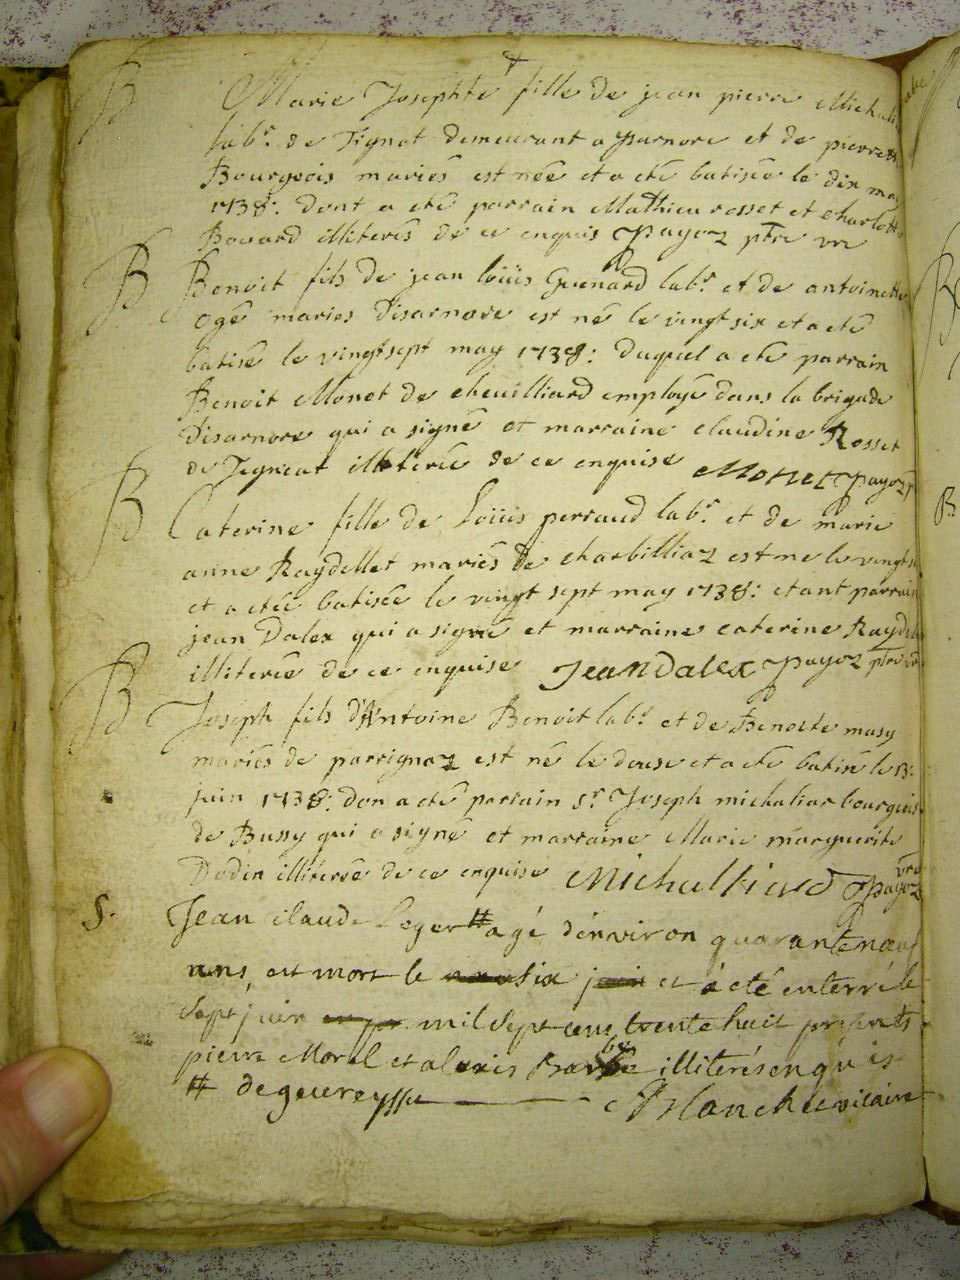 B Marie Josephte fille de jean pierre Michali
lab.r de Tignat demeurant a Parnore et de pierrette
Bourgeois mariés est née et a eté batisée le dix may
1738: dont a eté parrain Mathieu rosset et Charlotte
Bouard illiterés de ce enquis Payoz ptre vre
B Benoit fils de jean loüis Guenard lab.r et de antoinette
ogé mariés Disarnore est né le vingt six et a eté
batisé le vingt sept may 1738: duquel a eté parrain
Benoit Monet de cheuilliard employé dans la brigade
Disarnore qui a signé et marraine claudine Rosset
de Tegneat illiterée de ce enquise Monet Payoz p
B Caterine fille de Loüis perraud lab.r et de marie
anne Raydellet mariés de charbilliaz est ne le vingt si
et a etée batisée le vingt sept may 1738: etant parrain
jean Dalex qui a signé et marraine caterine Rayde
illiterée de ce enquise Jean Dalex Payoz ptre vre
B Joseph fils d'Antoine Benoit lab.r et de Benoite masy
mariés de parrignaz est né le douse et a eté batisé le 13:
juin 1738: don a eté parrain Sr. Joseph michaliar bourgeois
de Bussy qui a signé et marraine Marie marguerite
Dodin illiterée de ce enquise Michalliard Payoz vre
S. Jean claude Leger # agé d'environ quarante neuf
ans, est mort le six juin et a eté enterré le
sept juin mil sept cent trente huit presents
pierre Morel et alexis Barbe illiterés enquis
# de geureysset Blanchet vicaire